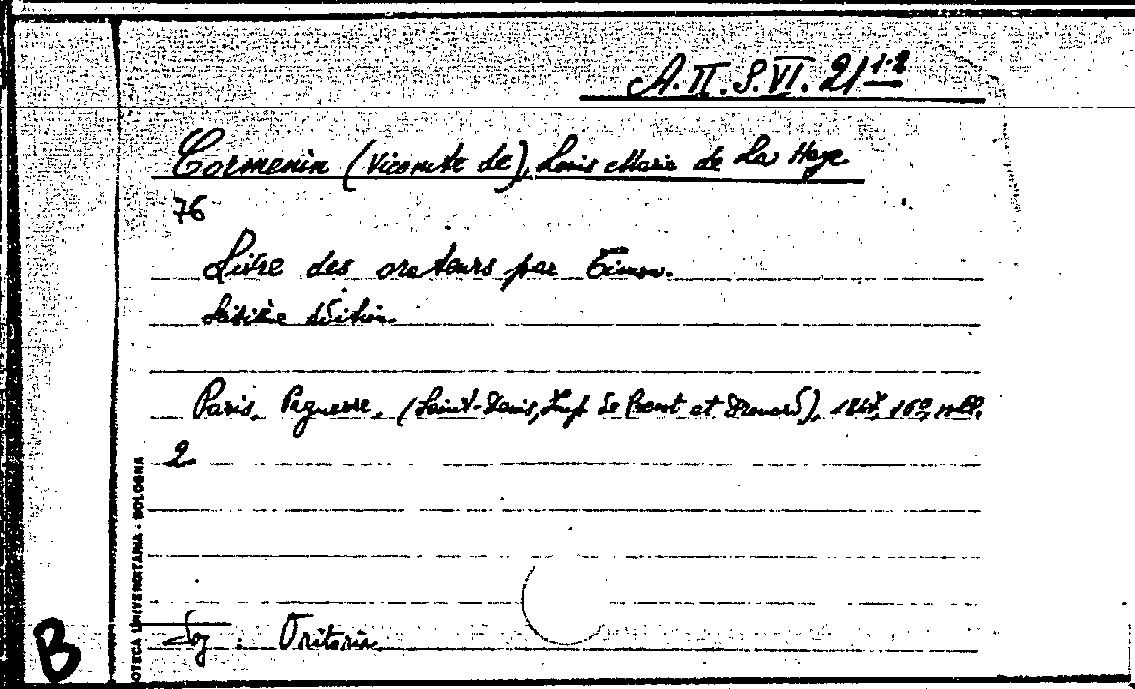 A.II.S.VI. 21 1-2
Cormenin (Vicomte de), Louis Marie de La Haye
76
Livre des orateurs par Timon.
édition.
Paris, Pagnerre, (Saint-Denis, Imp. de Prevot et Drouard), 1847, 16º, voll.
2
Sog: Oratoria
B
OTECA UNIVERSITARIA - BOLOGNA